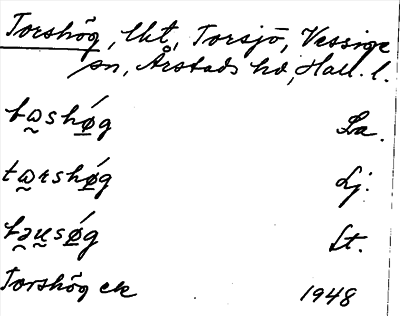 Torshög, lkt, Torsjö, Vessige
sn, Årstads hd, Hall. l.
tω̰shǿ̲g La.
tω̰rshǿ̲g Lj.
tə̰ṵsǿ̲g Lt.
Torshög ek 1948